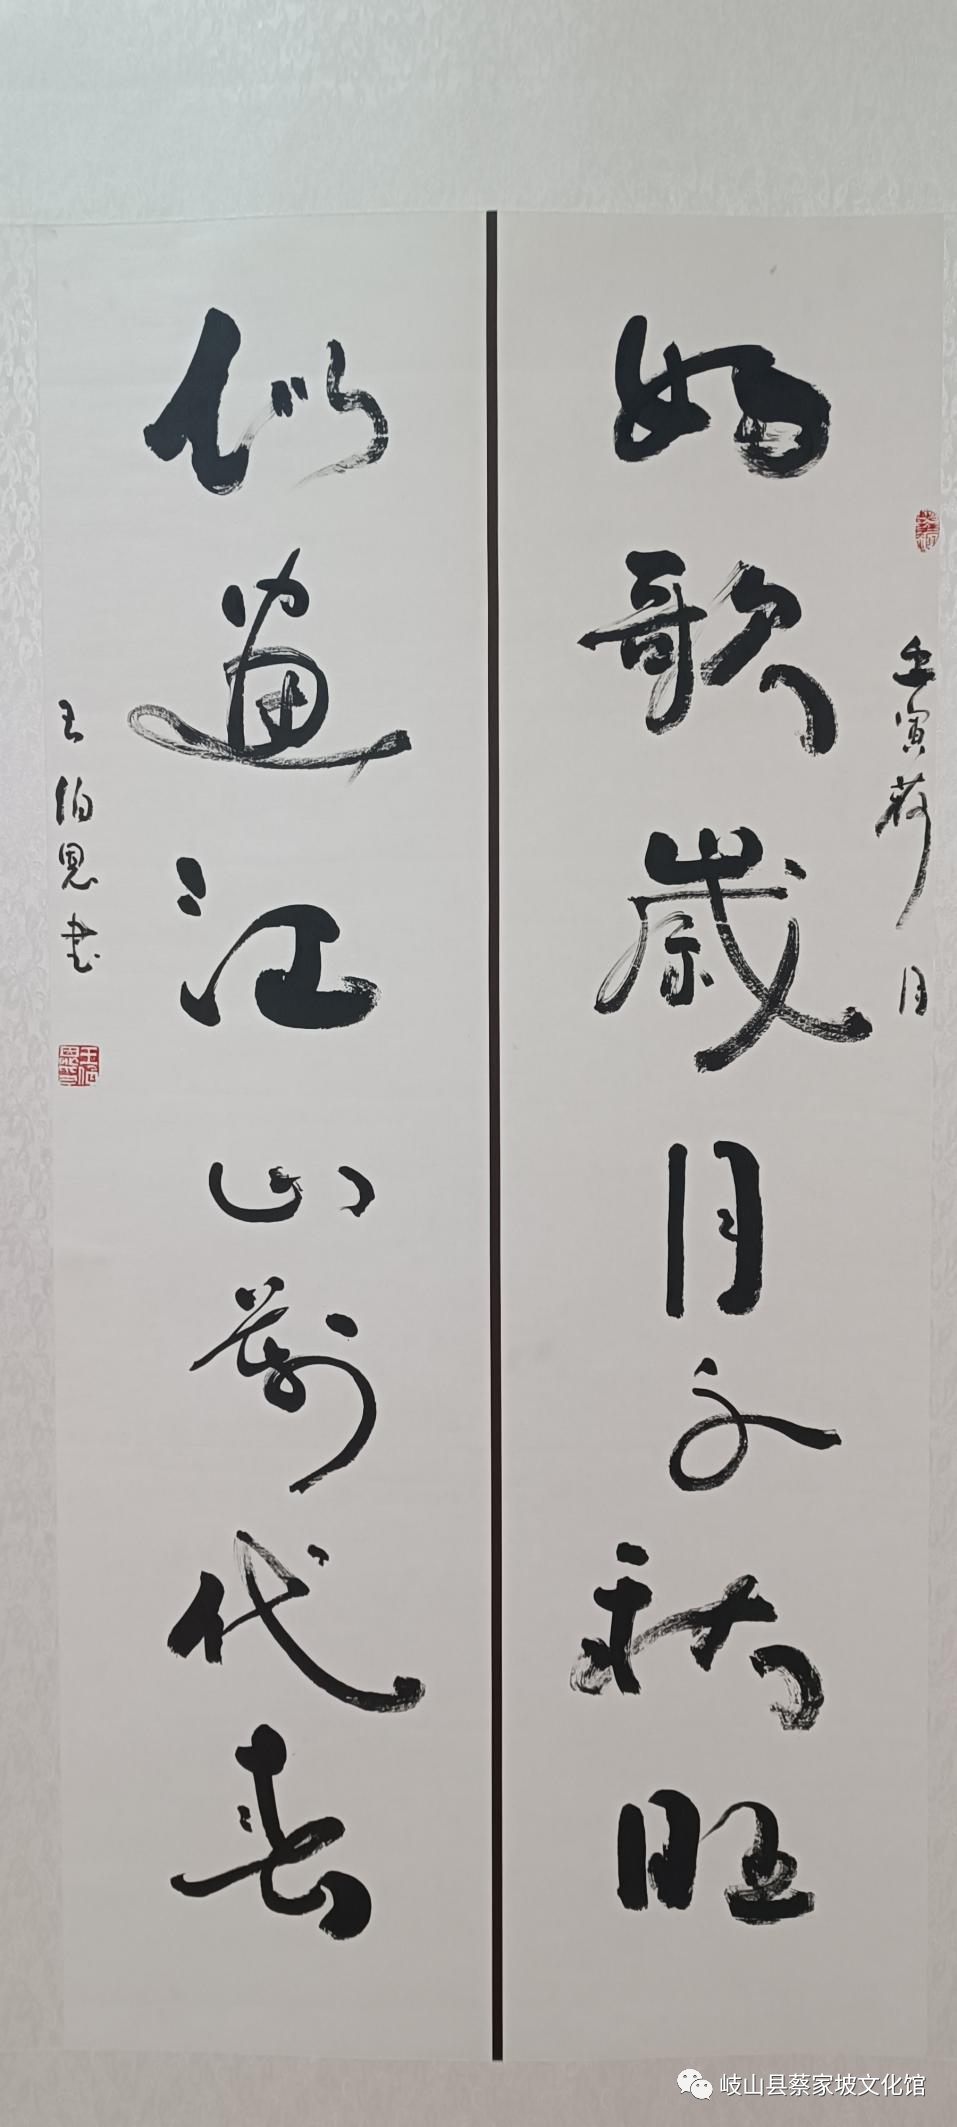 壬寅荷月
如歌歲月千秋旺
似畫江山萬代春
王伯恩书
岐山县蔡家坡文化馆